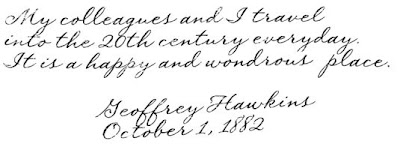 My colleagues and I travel
into the 20th century everyday.
It is a happy and wondrous place.
Geoffrey Hawkins
October 1, 1882